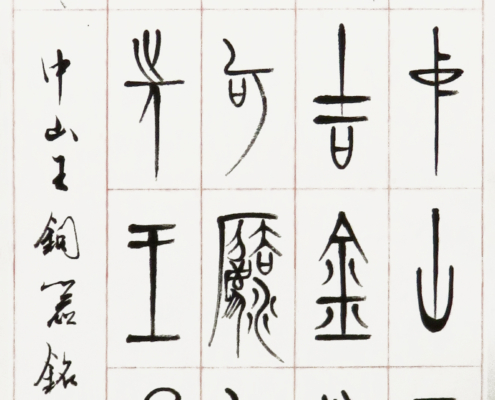 中山
吉金
可灋
先王
中山王銅器銘